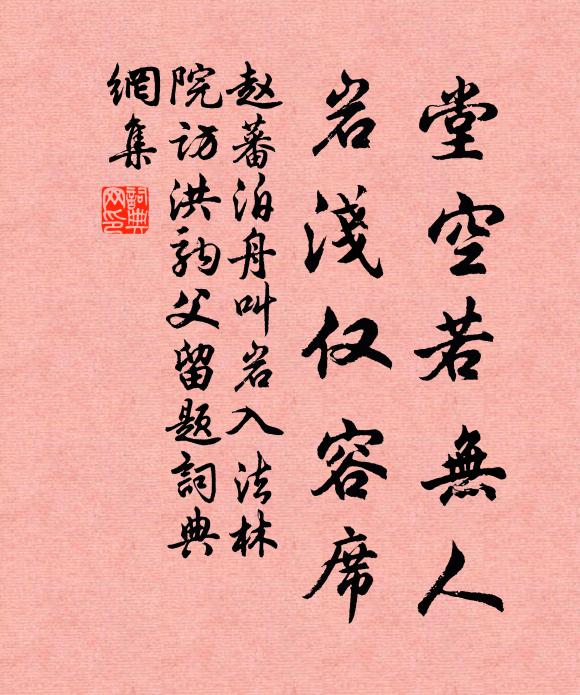 堂空若無人
岩淺仅容席
赵蕃泊舟叫岩入法林
院访洪駒父留题詞典
網集
詞典網印